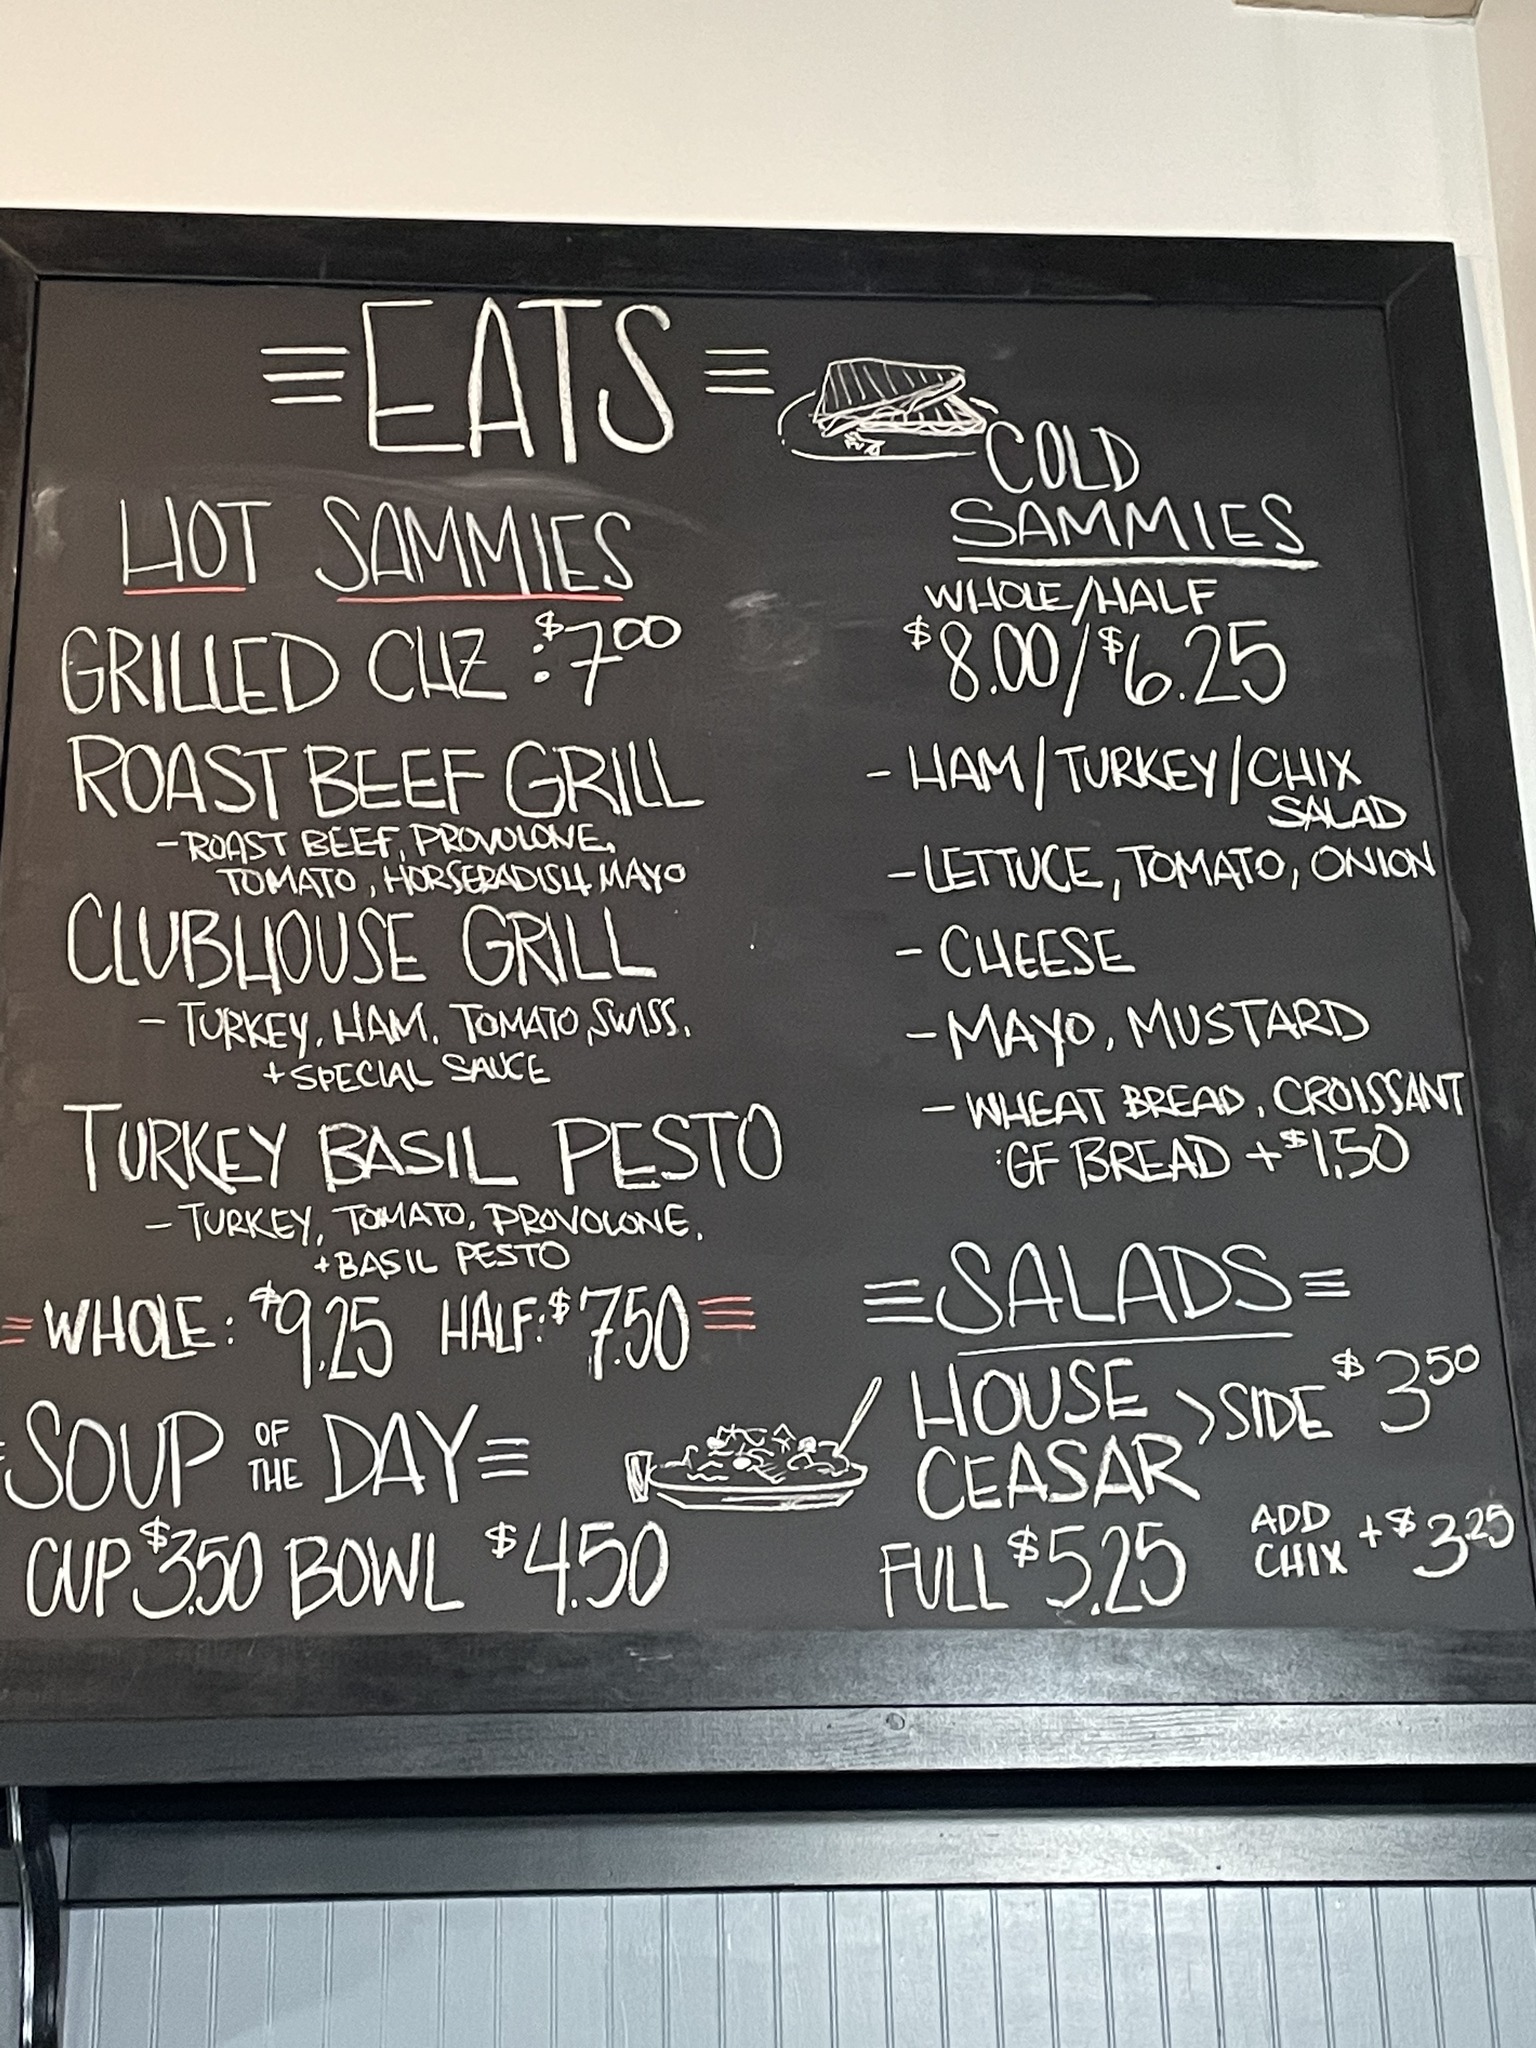 EATS
HOT SAMMIES
GRILLED CHZ : $7.00
ROAST BEEF GRILL
- ROAST BEEF, PROVOLONE,
TOMATO, HORSERADISH MAYO
CLUBHOUSE GRILL
- TURKEY, HAM, TOMATO, SWISS,
+ SPECIAL SAUCE
TURKEY BASIL PESTO
- TURKEY, TOMATO, PROVOLONE,
+ BASIL PESTO
WHOLE: $9.25 HALF: $7.50
SOUP OF THE DAY
CUP $3.50 BOWL $4.50
COLD
SAMMIES
WHOLE/HALF
$8.00/$6.25
- HAM/TURKEY/CHIX
SALAD
- LETTUCE, TOMATO, ONION
- CHEESE
- MAYO, MUSTARD
- WHEAT BREAD, CROISSANT
: GF BREAD +$1.50
SALADS
HOUSE > SIDE $3.50
CEASAR
FULL $5.25 ADD CHIX +$3.25